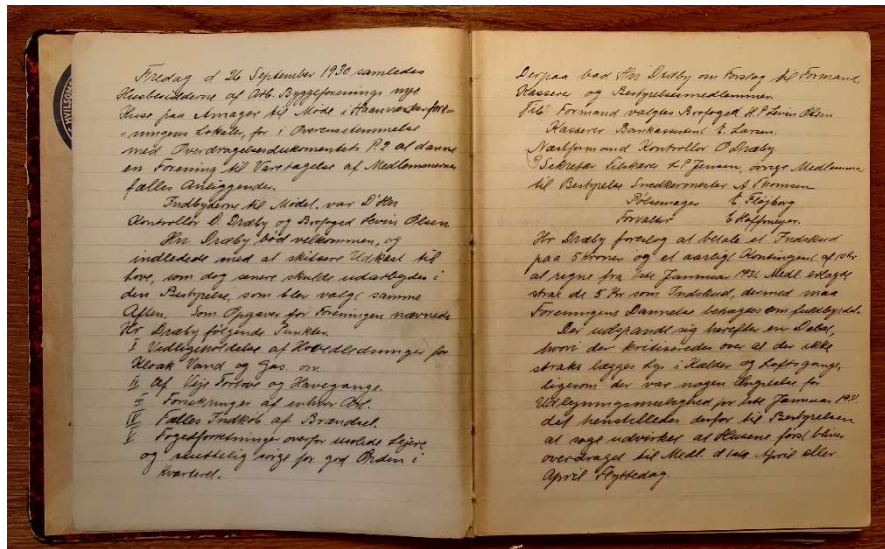 C. HVILSOM
Fredag d 26 September 1930 samledes
Husbesidderne af Arb. Byggeforenings nye
Huse paa Amager til Møde i Haandværkerfore-
ningens Lokaler, for i Overensstemmelse
med Overdragelsesdokumentets P. 2 at danne
en Forening til Varetagelse af Medlemmernes
fælles Anliggender.
Indbyderne til Mødet, var D'Hrr
Kontrollør O. Dræby og Brofoged Levin Olsen.
Hr Dræby bød velkommen, og
indledede med at skitsere Udkast til
love, som dog senere skulde udarbejdes i
den Bestyrelse, som blev valgt samme
Aften. Som Opgaver for Foreningen nævnede
Hr. Dræby følgende Punkter.
I Vedligeholdelse af Hovedledninger for
Kloak Vand og Gas. m.
II Af Veje Fortove og Havegange.
III Forsikringer af enhver Art.
IV Fælles Indkøb af Brændsel.
V Fogedforretninger overfor usolide Lejere
og smuttelig sørge for god Orden i
Kvarteret.
Derpaa bad Hr. Dræby om Forslag til Formand,
Kasserer og Bestyrelsesmedlemmer.
Til Formand valgtes Brofoged H. P. Levin Olsen
Kasserer Bankassistent E. Larsen.
Næstformand Kontrollør O Dræby
Sekretær L. P. Jensen, øvrige Medlemmer
til Bestyrelse Snedkermester A Thomsen
Pølsemager E Fløjborg
Forvalter E Hoffmeyer.
Hr Dræby foreslog at betale et Indskud
paa 5 Kroner og et aarligt Kontingent af 10 Kr
at regne fra 1ste Januar 1931. Medl. erlagde
strax de 5 Kr som Indskud, dermed maa
Foreningens Dannelse betragtes som fuldbyrdet.
Der udspandt sig herefter en Debat,
hvori der kritiseredes over at der ikke
straks lægges Lys i Kælder og Loftsgange,
ligesom der var nogen Ængstelse for
Udlejningsmulighed pr 1ste Januar 1931.
det henstilledes derfor til Bestyrelsen
at søge udvirket at Husene først bliver
overdraget til Medl. d 1ste April eller
April Flyttedag.